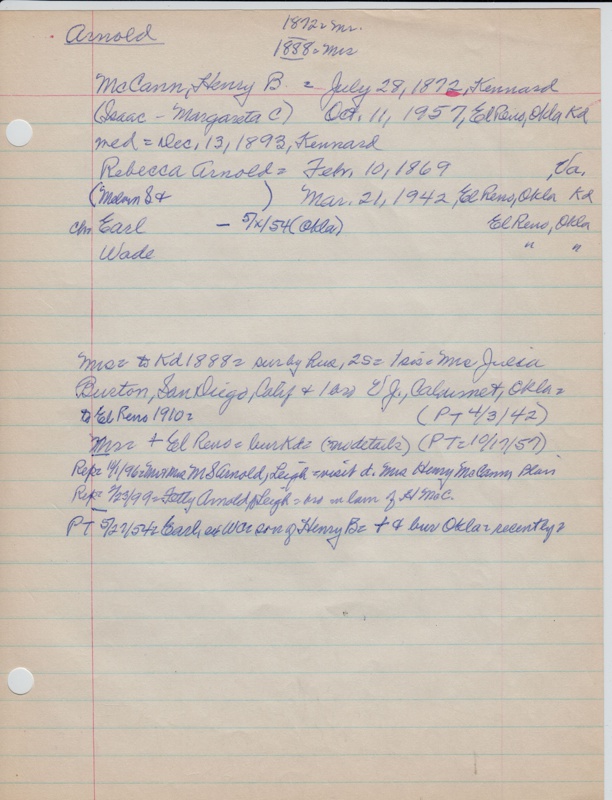 Arnold
1872=Mr.
1888=Mrs
McCann, Henry B. = July 28, 1872, Kennard
(Isaac - Margareta C) Oct. 11, 1957, El Reno, Okla Kd
med = Dec, 13, 1893, Kennard
Rebecca Arnold = Febr. 10, 1869 , Va.
(Melvin S + ) Mar. 21, 1942, El Reno, Okla Kd
chn Earl - 5/x/54 (Okla) El Reno, Okla
Wade " "
Mrs = to Kd 1888 = sur by hus, 2s = 1 sis = Mrs Julia
Burton, San Diego, Calif + 1 bro V J., Calumet, Okla =
to El Reno 1910 = (PT 4/3/42)
Mr = + El Reno = bur Kd = (no details) (PT = 10/17/57)
Rep = Mr + Mrs M S Arnold, Leigh = visit d. Mrs Henry McCann, Blair
Rep = Arnold, Leigh = bro in law of H McC.
PT 5/27/54 = Earl, ex WCr son of Henry B = + & bur Okla = recently =